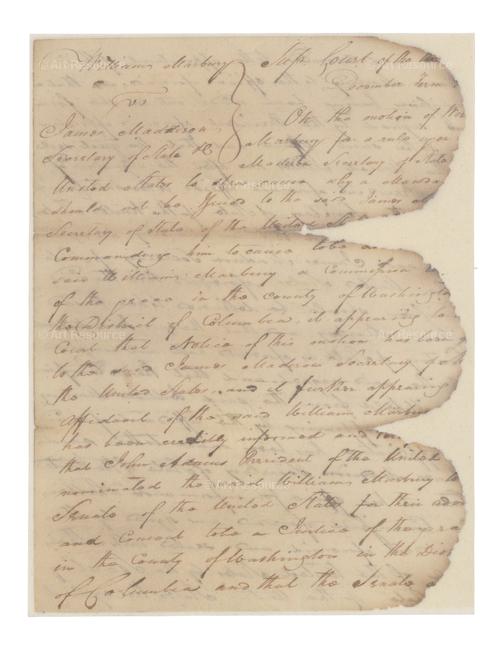 William Marbury } Supr Court of the
vs December Term
James Maddison, On the motion of
Secretary of State &c Marbury for a rule upon
Maddison Secretary of State
United States to shew cause why a Manda
should not be Issued to the said James
Secretary of State of the United States
Commanding him to cause to be
said William Marbury a Commission
of the peace in the county of Washington
the District of Columbia, it appearing to
Court that Notice of this motion has been
to the said James Madison Secretary of
the United States, and it further appearing
Affidavit of the said William Marbury
has been credibly informed and
that John Adams President of the United
nominated the said William Marbury to
Senate of the United States for their advi
and Consent to be a Justice of the pea
in the County of Washington in the Dis
of Columbia and that the Senate
© Art Resource